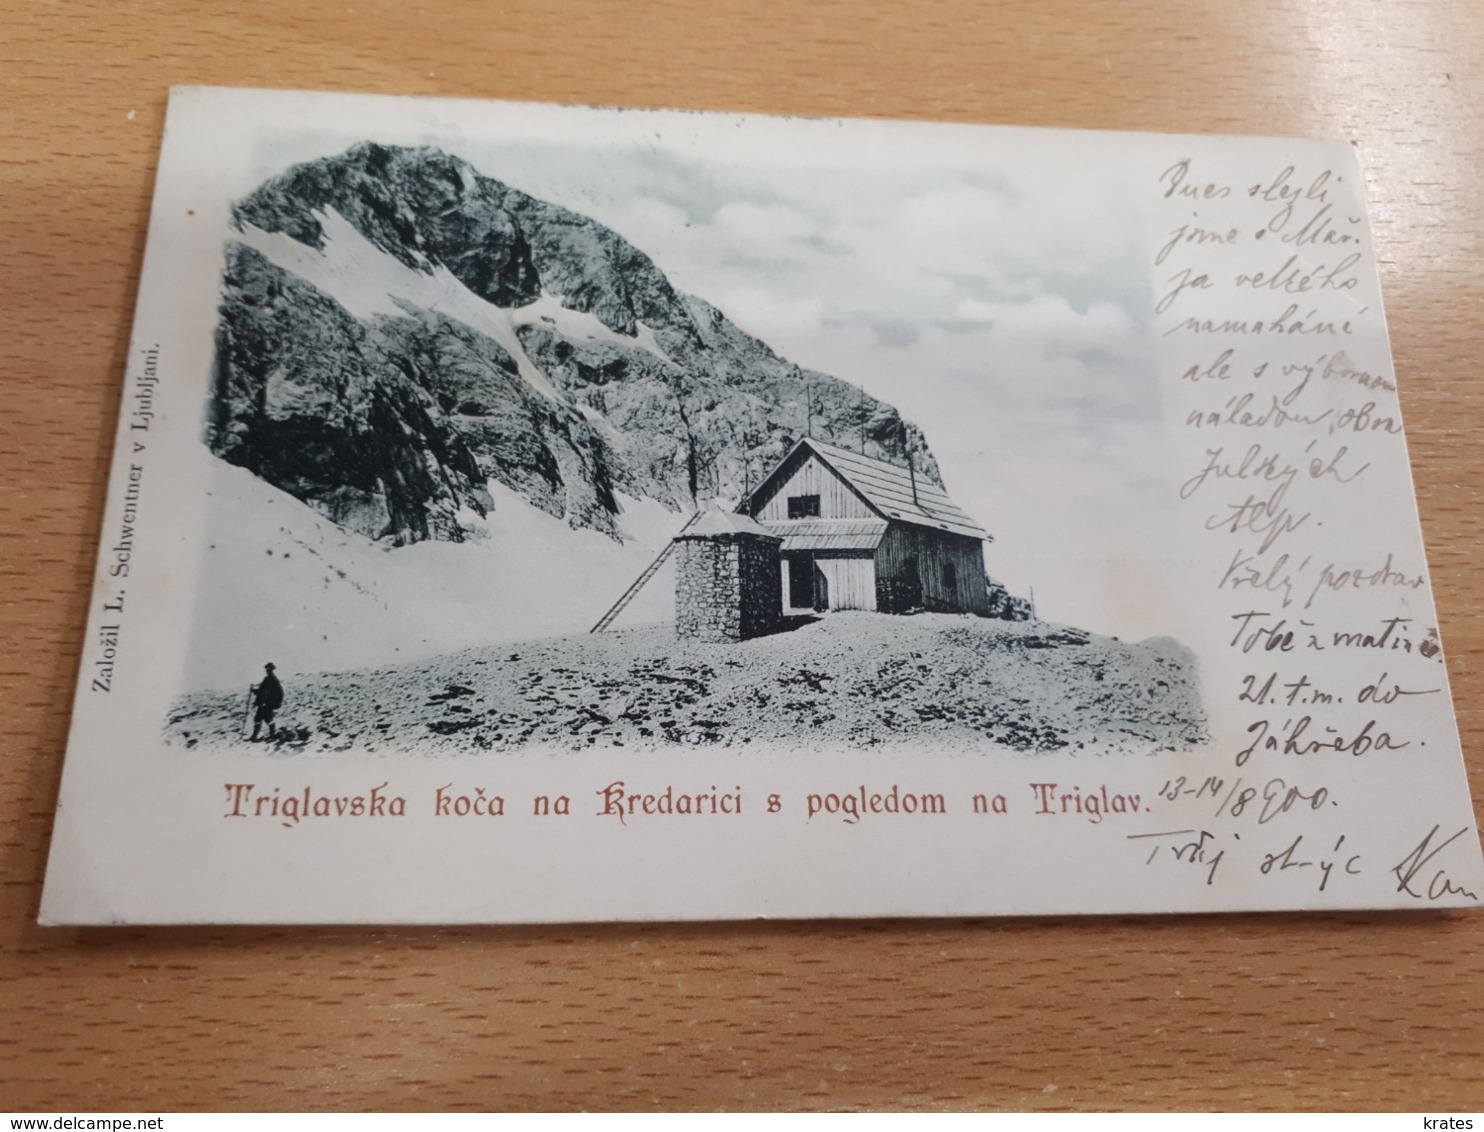 Založil L. Schwentner v Ljubljani.
Dnes slezli
jsme s
velkého
namáhání
ale s výbornou
náladou, obra
Julských
Alp.
Vřelý pozdrav
Tobě z
21. t. m. do
Záhřeba.
13-14/8 900.
Tvůj strýc
Triglavska koča na Kredarici s pogledom na Triglav.
delcampe.net
krates